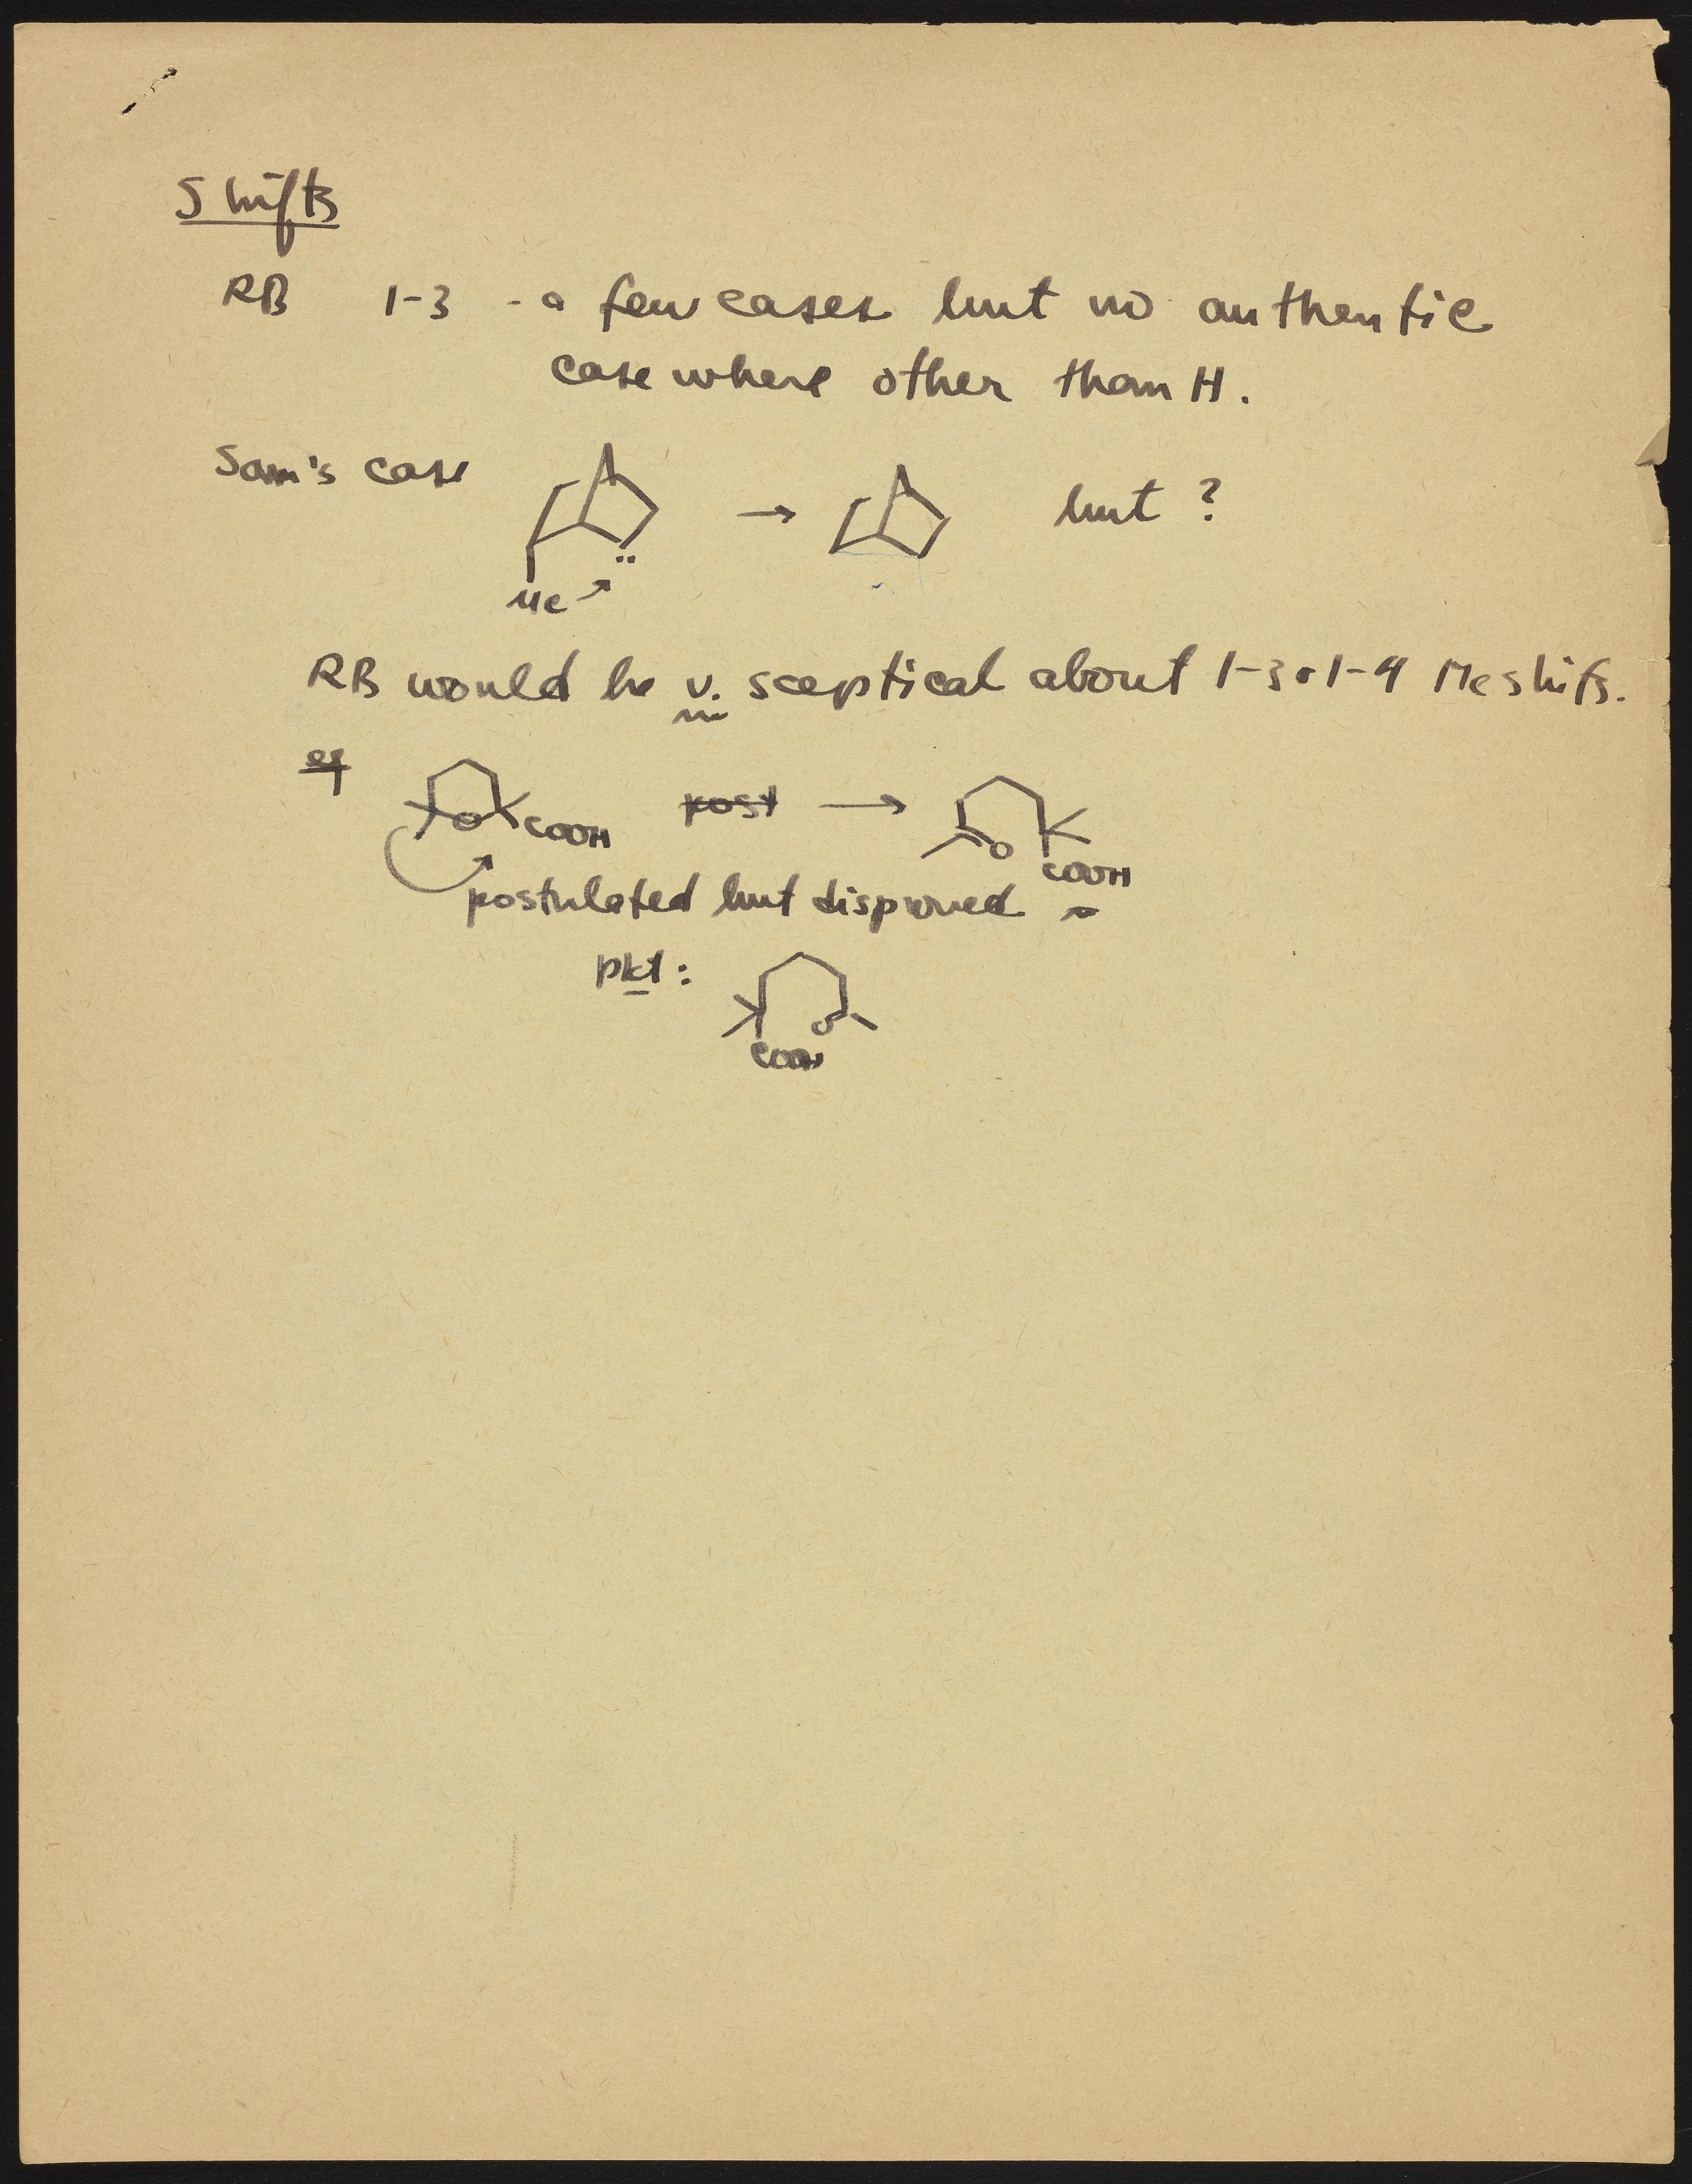 Shifts
RB 1-3 - a few cases but no authentic
case where other than H.
Sam's case → but ?
Me
RB would be v. sceptical about 1-3 or 1-4 Me shifts.
eg
O COOH post → O COOH
postulated but disproved
pkt:
O
COOH